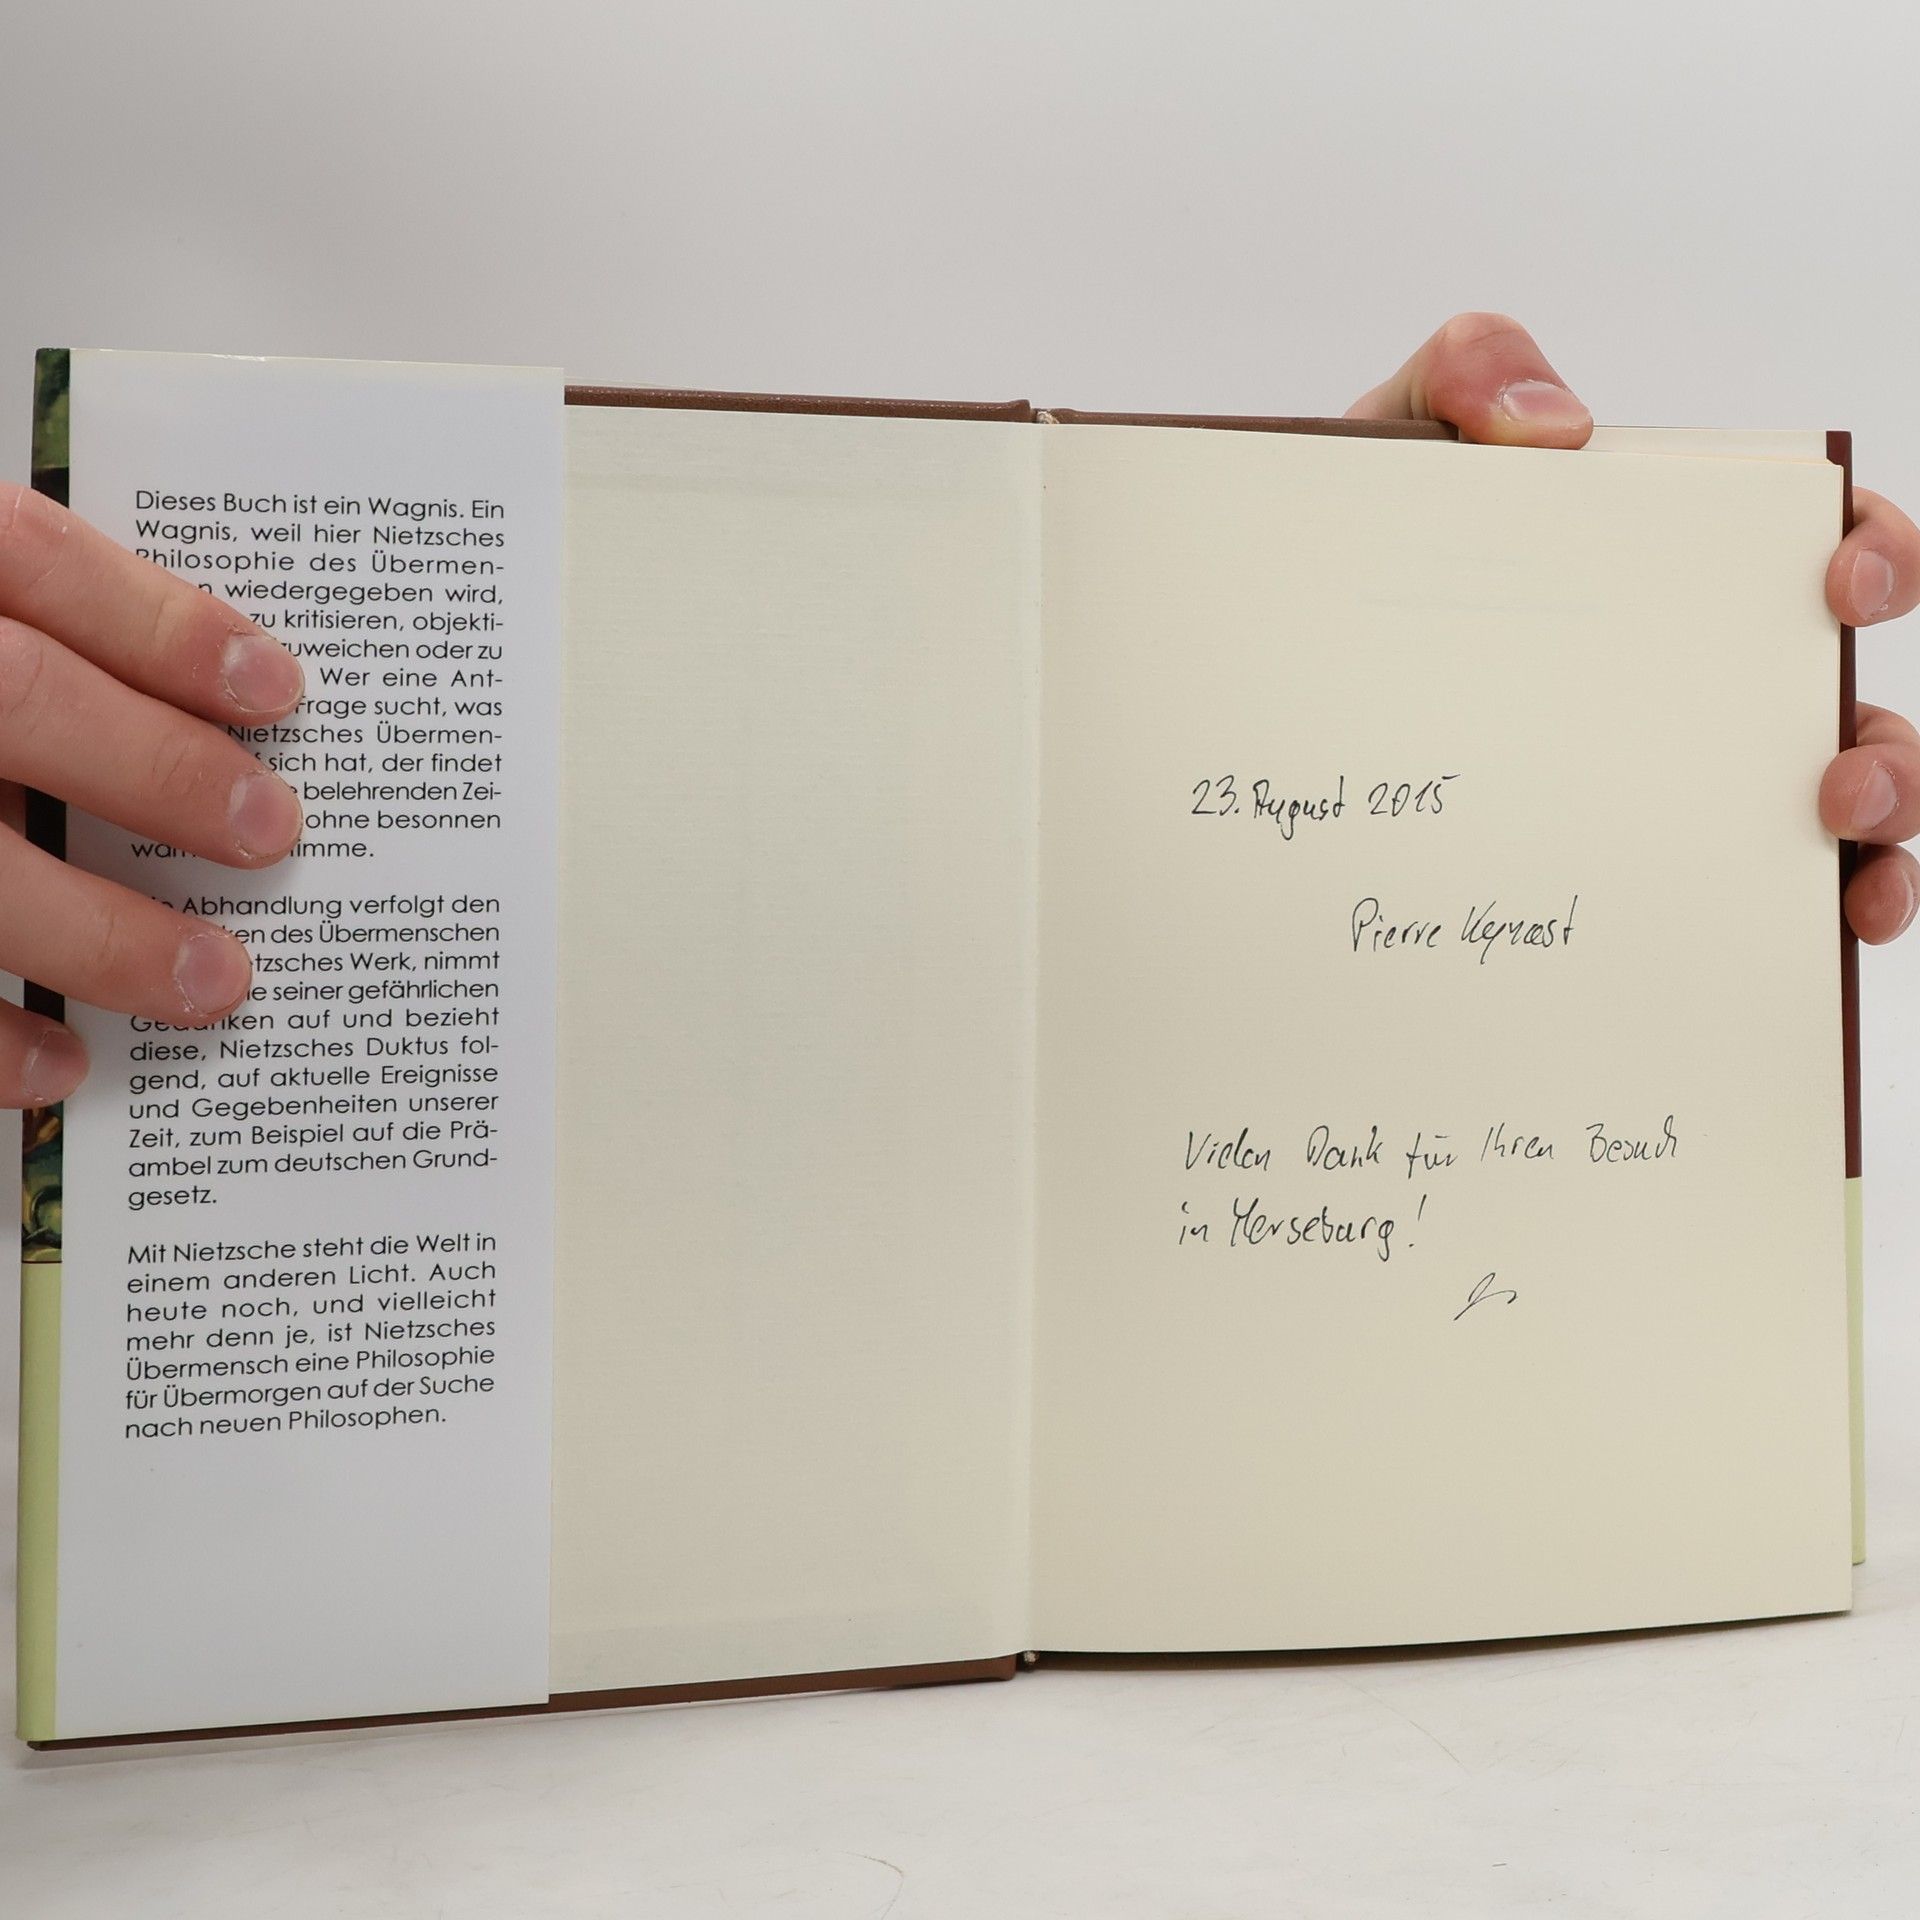 Dieses Buch ist ein Wagnis. Ein
Wagnis, weil hier Nietzsches
Philosophie des Übermen-
wiedergegeben wird,
zu kritisieren, objekti-
oder zu
Wer eine Ant-
sucht, was
Nietzsches Übermen-
sich hat, der findet
belehrenden Zei-
ohne besonnen

Abhandlung verfolgt den
des Übermenschen
Werk, nimmt
seiner gefährlichen
Gedanken auf und bezieht
diese, Nietzsches Duktus fol-
gend, auf aktuelle Ereignisse
und Gegebenheiten unserer
Zeit, zum Beispiel auf die Prä-
ambel zum deutschen Grund-
gesetz.
Mit Nietzsche steht die Welt in
einem anderen Licht. Auch
heute noch, und vielleicht
mehr denn je, ist Nietzsches
Übermensch eine Philosophie
für Übermorgen auf der Suche
nach neuen Philosophen.
23. August 2015
Pierre Kynast
Vielen Dank für Ihren Besuch
in Merseburg!